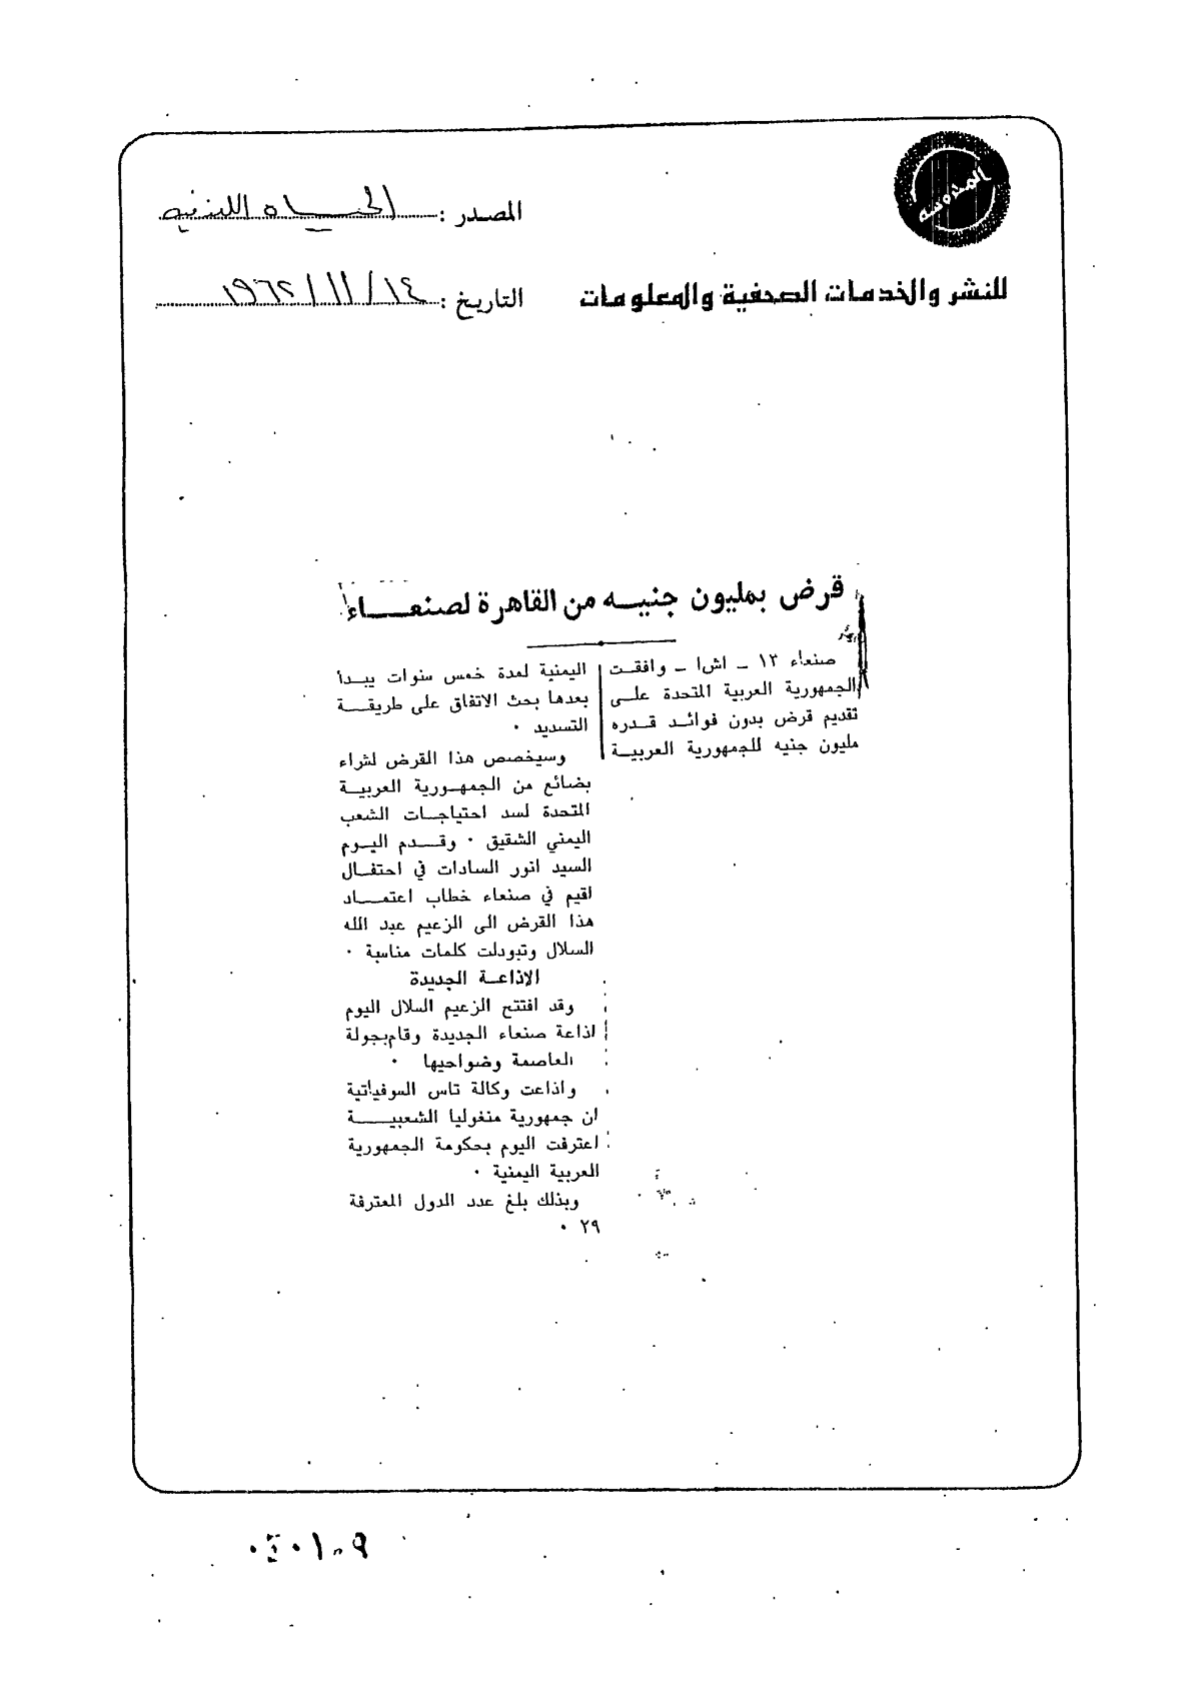 المدوسه
المصدر : الحياه اللبنانيه
للنشر والخدمات الصحفية والمعلومات
التاريخ : ١٩٦٢/١١/١٤
قرض بمليون جنيـــه من القاهرة لصنعــــاء
صنعاء ١٣ ـ اشا ـ وافقـت
الجمهورية العربية المتحدة علـى
تقديم قرض بدون فوائـد قـدره
مليون جنيه للجمهورية العربيـة
اليمنية لمدة خمس سنوات يبـدا
بعدها بحث الاتفاق على طريقـة
التسديد ٠
وسيخصص هذا القرض لشراء
بضائع من الجمهـورية العربيـة
المتحدة لسد احتياجـات الشعب
اليمني الشقيق ٠ وقـدم اليـوم
السيد انور السادات في احتفـال
اقيم في صنعاء خطاب اعتمـاد
هذا القرض الى الزعيم عبد الله
السلال وتبودلت كلمات مناسبة ٠
الاذاعـة الجديدة
وقد افتتح الزعيم السلال اليوم
اذاعة صنعاء الجديدة وقام بجولة
العاصمة وضواحيها ٠
واذاعت وكالة تاس السوفياتية
ان جمهورية منغوليا الشعبيـــة
اعترفت اليوم بحكومة الجمهورية
العربية اليمنية ٠
وبذلك بلغ عدد الدول المعترفة
٢٩ ٠